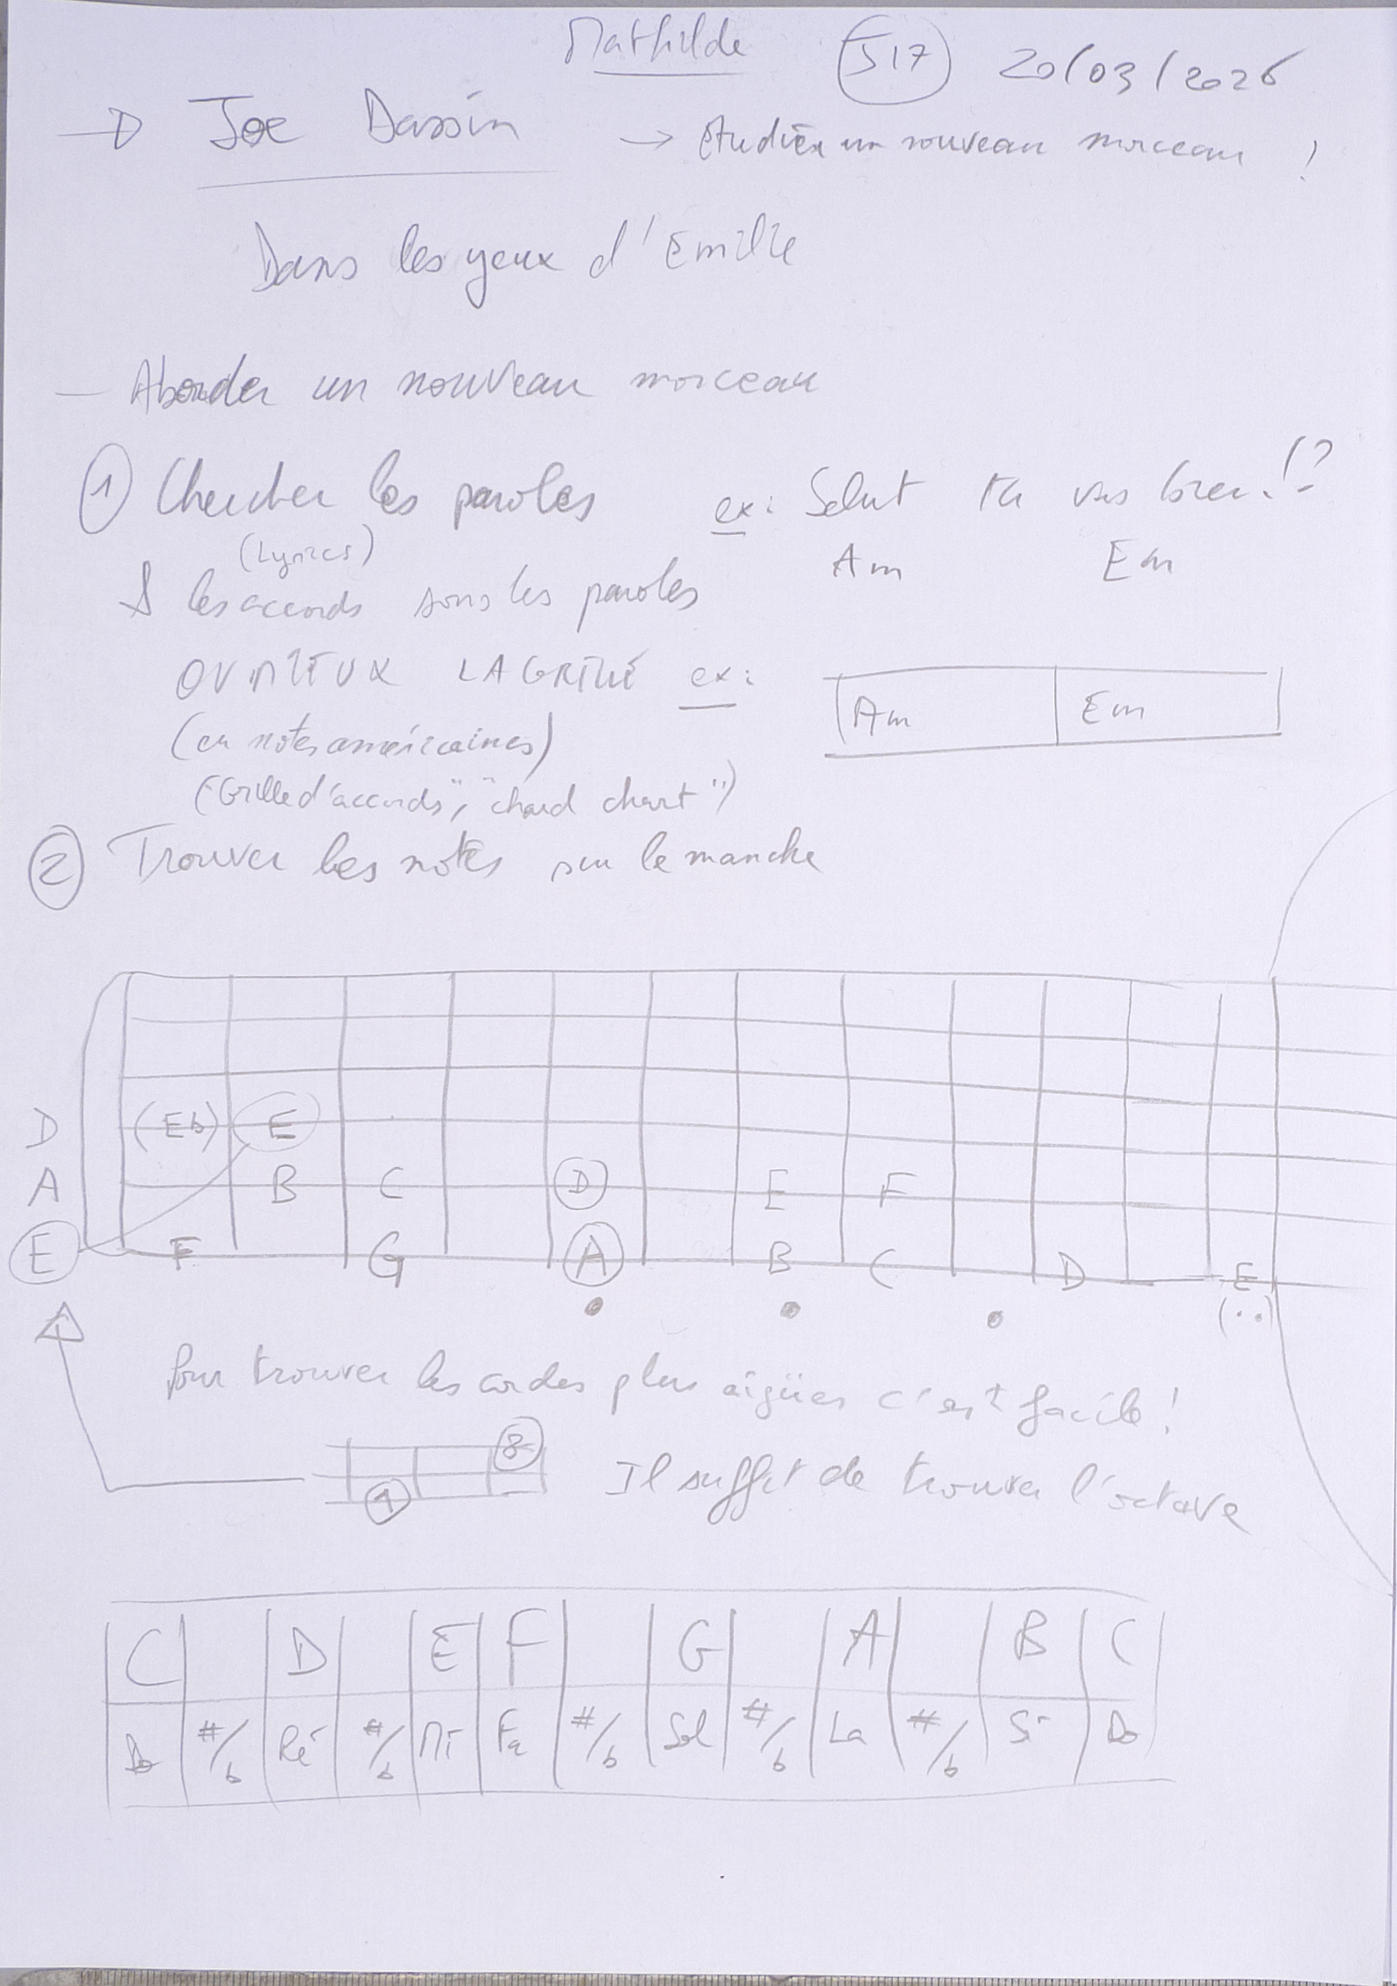 Mathilde S17 20/03/2026
Joe Dassin → étudier un nouveau morceau !
Dans les yeux d'Emilie
— Aborder un nouveau morceau
① Chercher les paroles ex: Salut tu vas bien !?
(Lyrics) Am Em
& les accords sous les paroles
OU MIEUX LA GRILLE ex: Am Em
(en notes américaines)
("Grille d'accords", "chord chart")
② Trouver les notes sur le manche
D (Eb) E
A B C D E F
E F G A B C D E
(..)
Pour trouver les cordes plus aigües c'est facile !
8
1 Il suffit de trouver l'octave
C D E F G A B C
Do #/b Ré #/b Mi Fa #/b Sol #/b La #/b Si Do